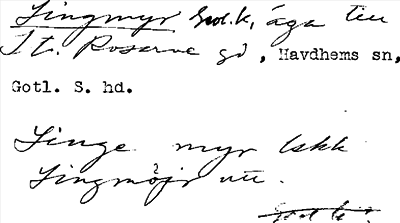 Lingmyr Gotl., äga till
St. Rosarve gd, Havdhems sn,
Gotl. S. hd.
Linge myr
Lingmöjr utt.